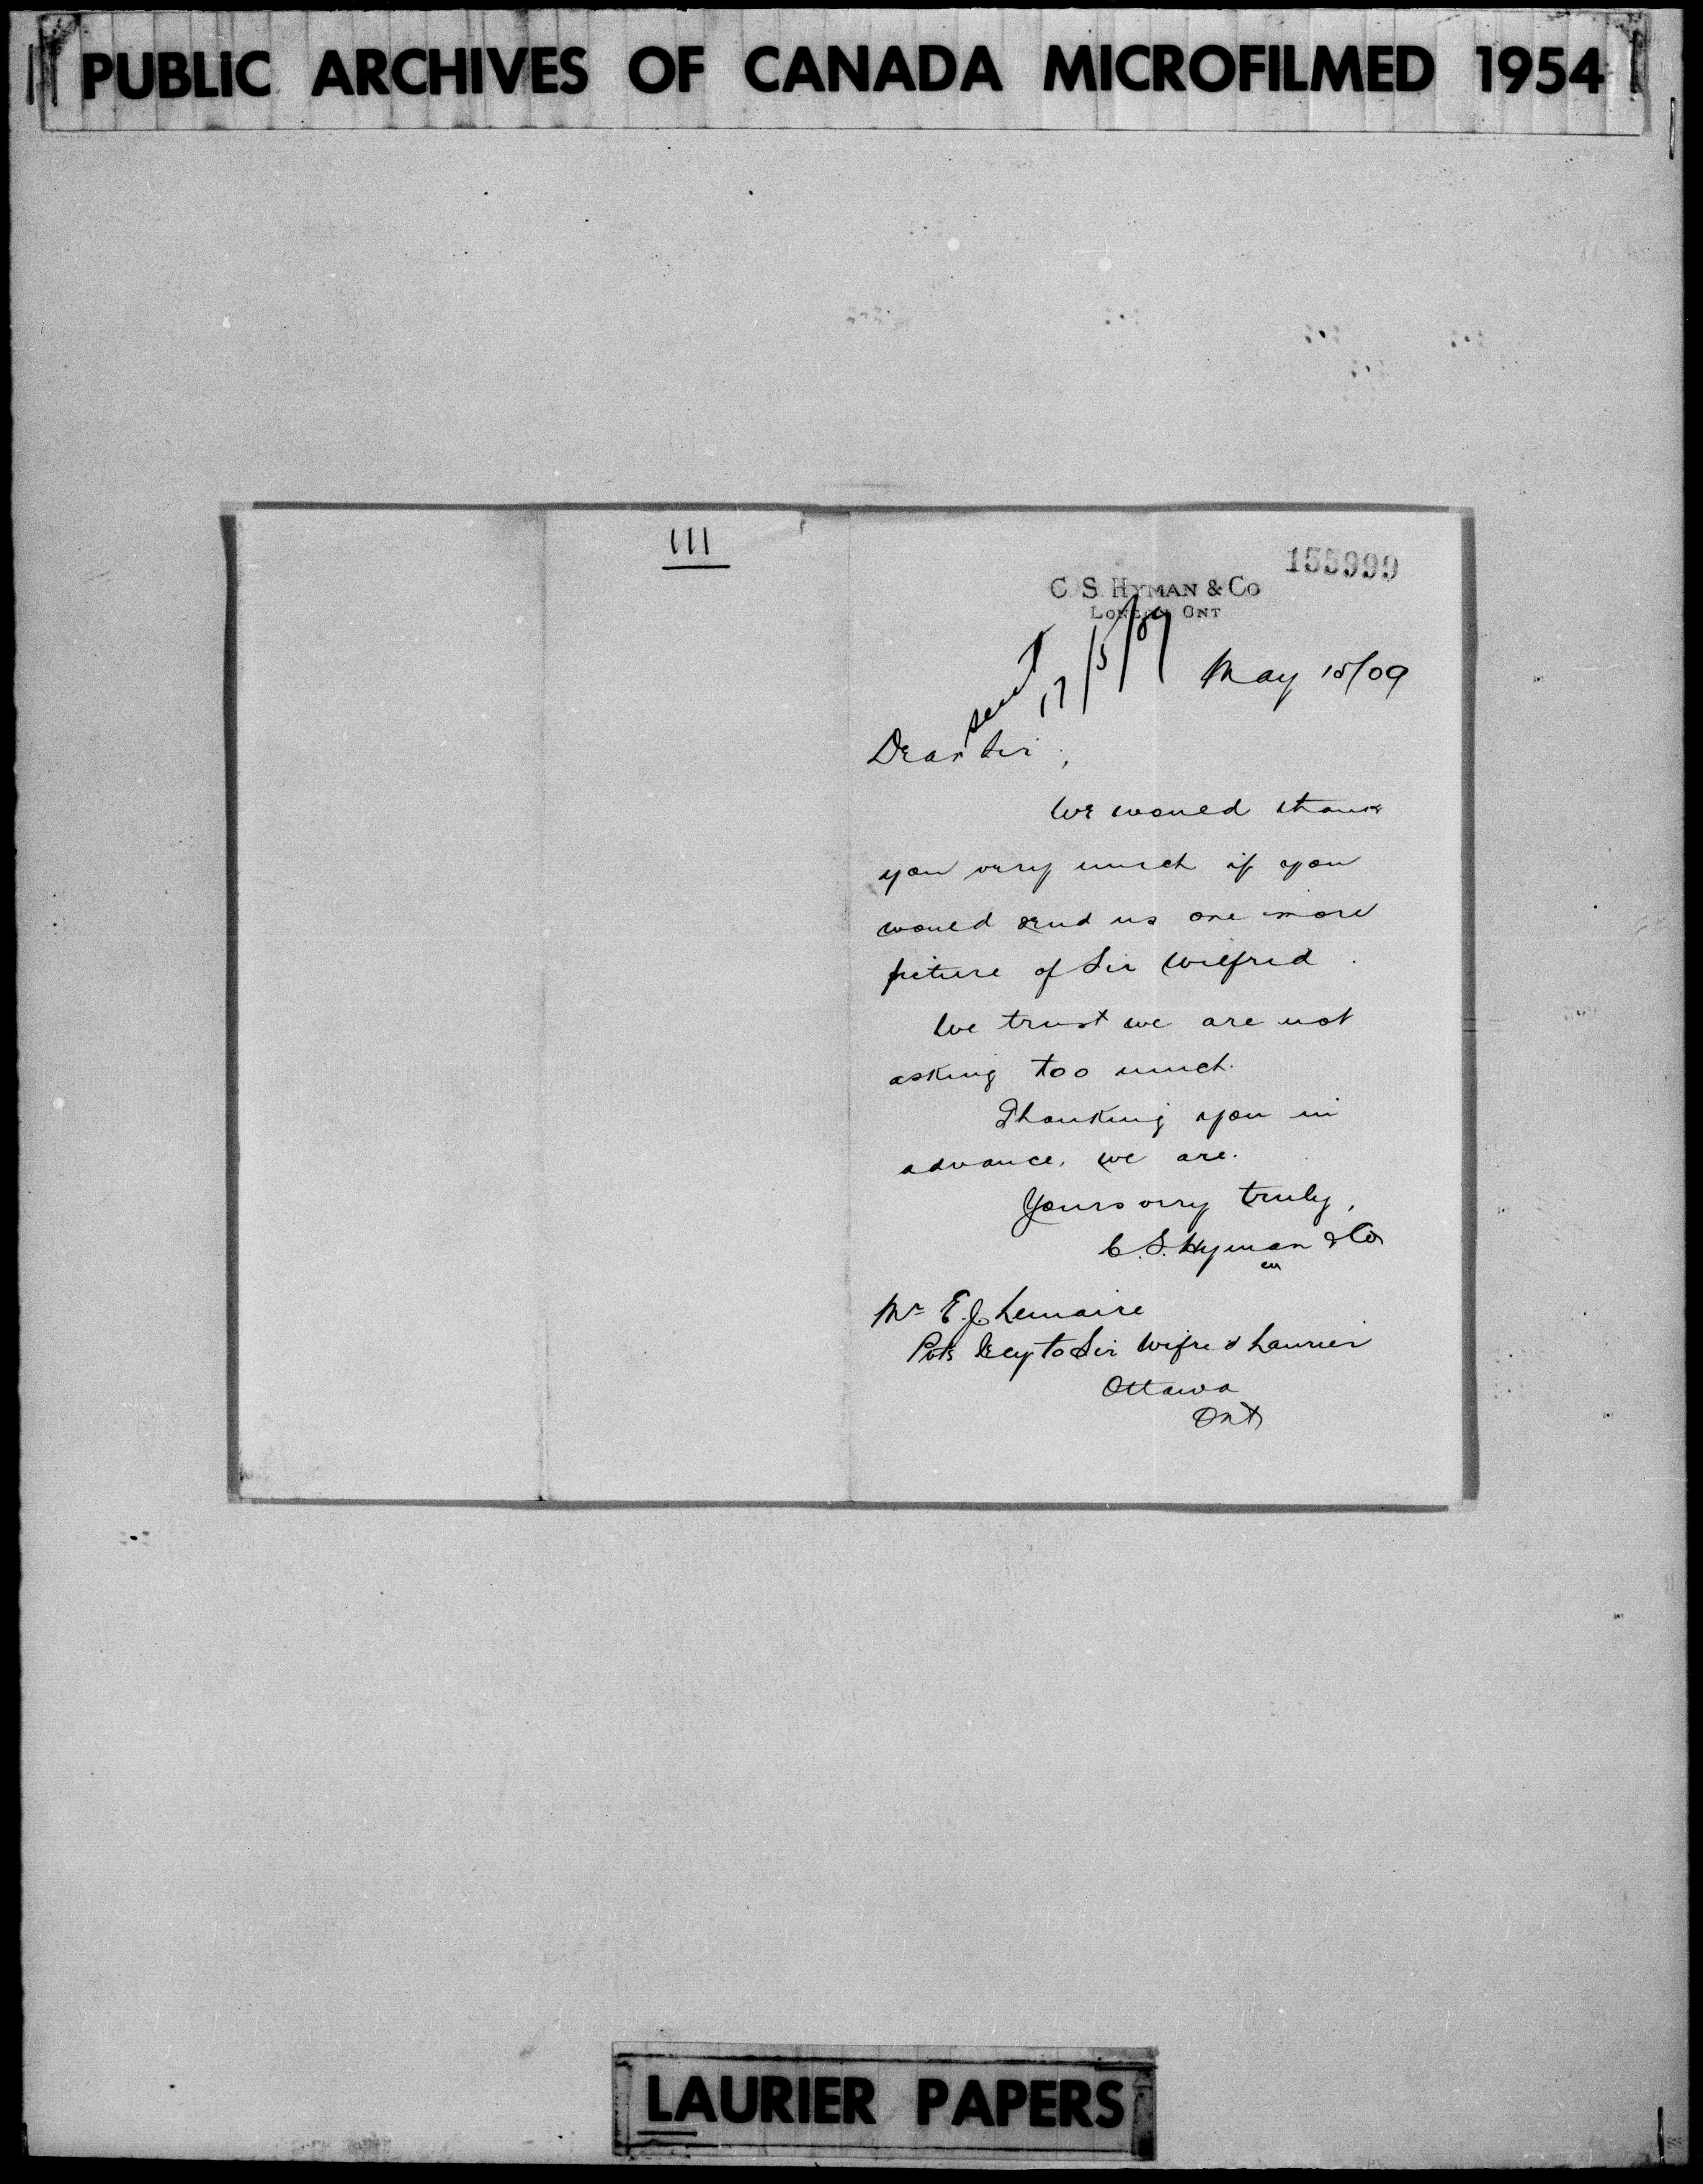 PUBLIC ARCHIVES OF CANADA MICROFILMED 1954
111
155999
C. S. HYMAN & CO
LONDON ONT
sent
17/5/09
May 15/09
Dear Sir,
We would thank
you very much if you
would send us one more
picture of Sir Wilfrid.
We trust we are not
asking too much.
Thanking you in
advance, we are.
Yours very truly,
C. S. Hyman & Co
Mr E. J. Lemaire
Secy to Sir Wifred Laurier
Ottawa
Ont
LAURIER PAPERS